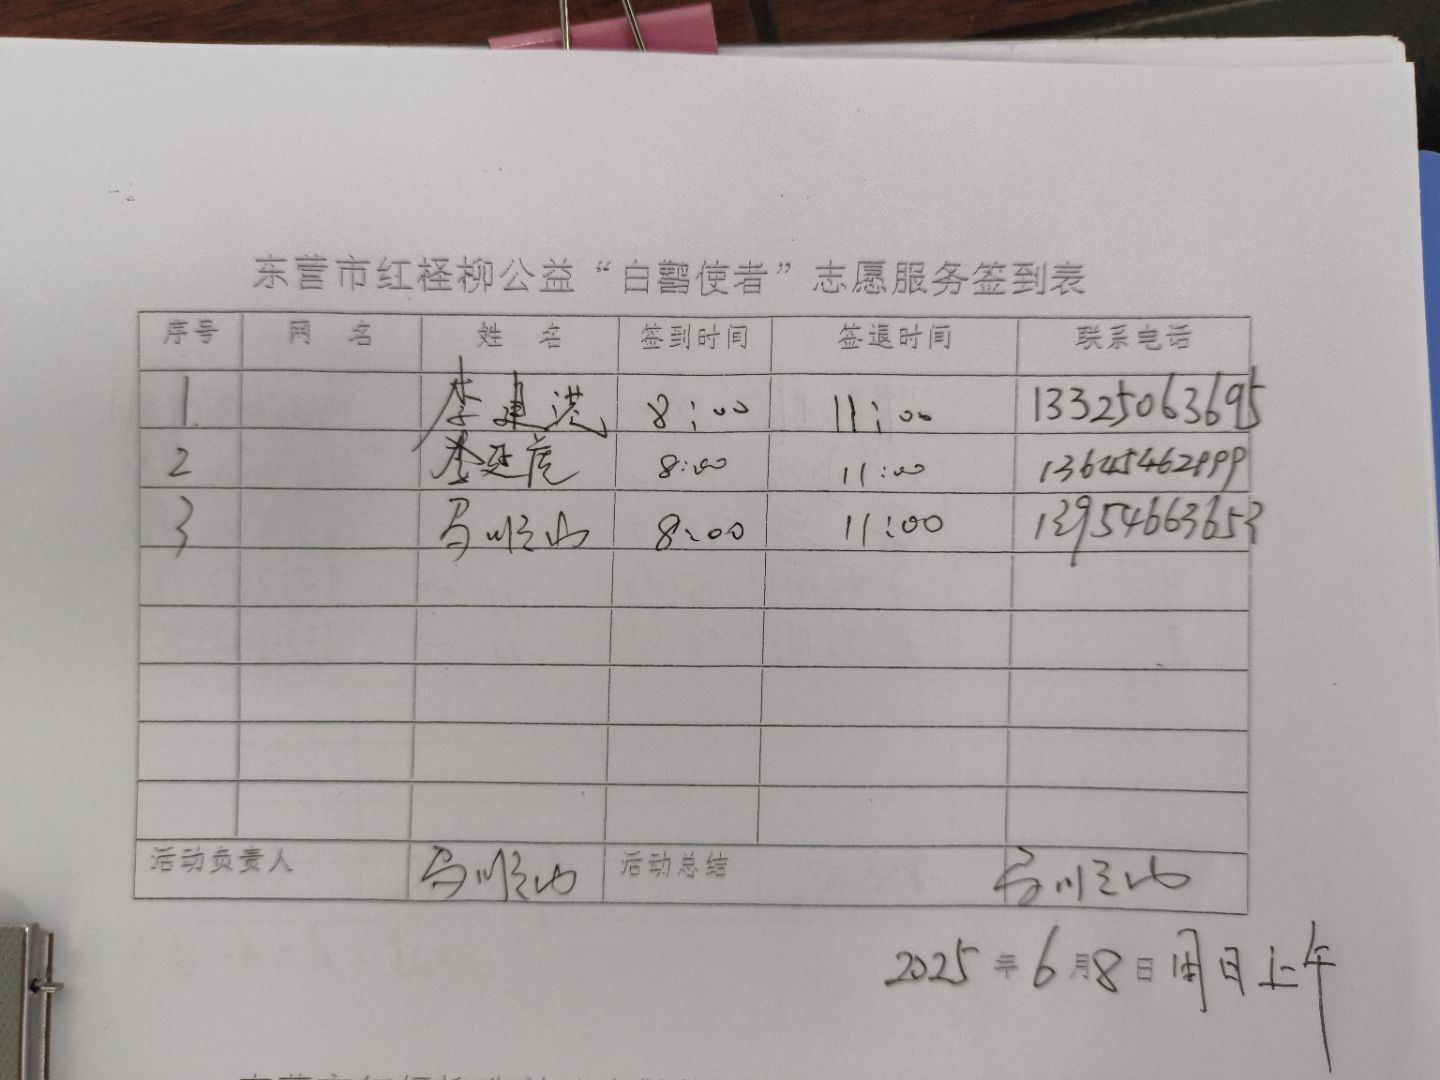 东营市红柽柳公益“白鹳使者”志愿服务签到表
序号 网 名 姓 名 签到时间 签退时间 联系电话
1 李建洪 8:00 11:00 13325063695
2 李延虎 8:00 11:00 13645462999
3 马顺山 8:00 11:00 13954663653
活动负责人 马顺山 活动总结 马顺山
2025年6月8日周日上午